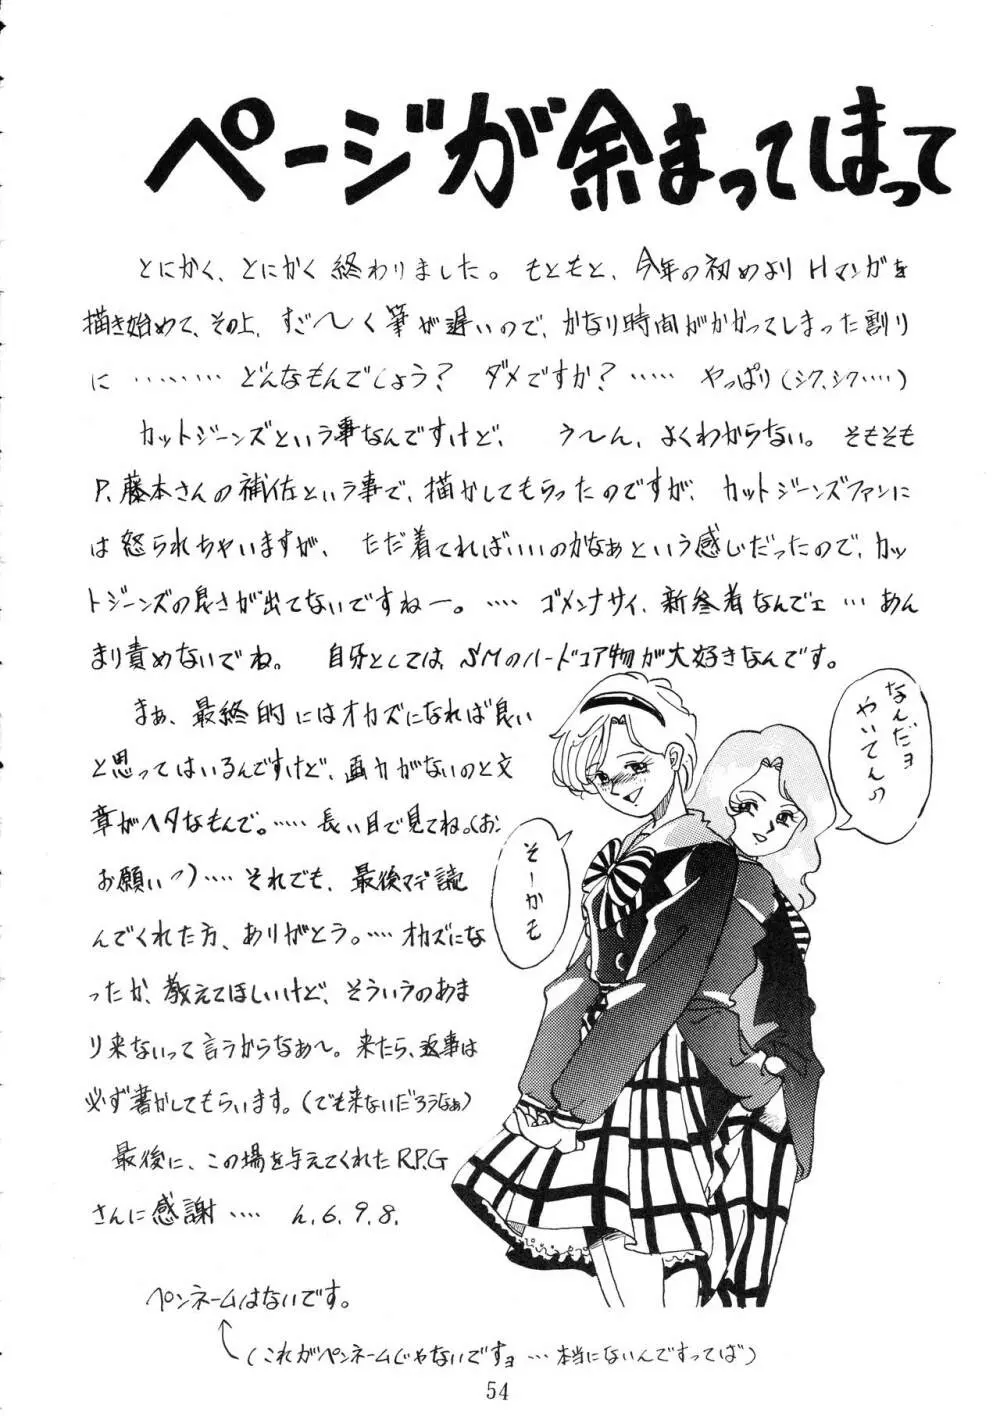 ページが余まってしまって
とにかく、とにかく終わりました。もともと、今年の初めよりHマンガを
描き始めて、その上、すご〜く筆が遅いので、かなり時間がかかってしまった割り
に ……… どんなもんでしょう? ダメですか? …… やっぱり(シク、シク……)
カットジーンズという事なんですけど、 う〜ん、よくわからない。そもそも
P、藤本さんの補佐という事で、描かしてもらったのですが、カットジーンズファンに
は怒られちゃいますが、ただ着てればいいのかなぁという感じだったので、カッ
トジーンズの良さが出てないですねー。…… ゴメンナサイ、新参者なんでェ … あん
まり責めないでね。 自分としては、SMのハードコア物が大好きなんです。
まぁ、最終的にはオカズになれば良い
と思ってはいるんですけど、画力がないのと文
章がヘタなもんで。…… 長い目で見てね。(お
お願いっ)…… それでも、最後マデ読
んでくれた方、ありがとう。…… オカズにな
ったか、教えてほしいけど、そういうのあま
り来ないって言うからなぁ〜。来たら、返事は
必ず書かしてもらいます。(でも来ないだろうなぁ)
最後に、この場を与えてくれたR.P.G
さんに感謝 …… h.6.9.8.
なんだョ
やいてんの
そーかも
ペンネームはないです。
(これがペンネームじゃないですョ … 本当にないんですってば)
54